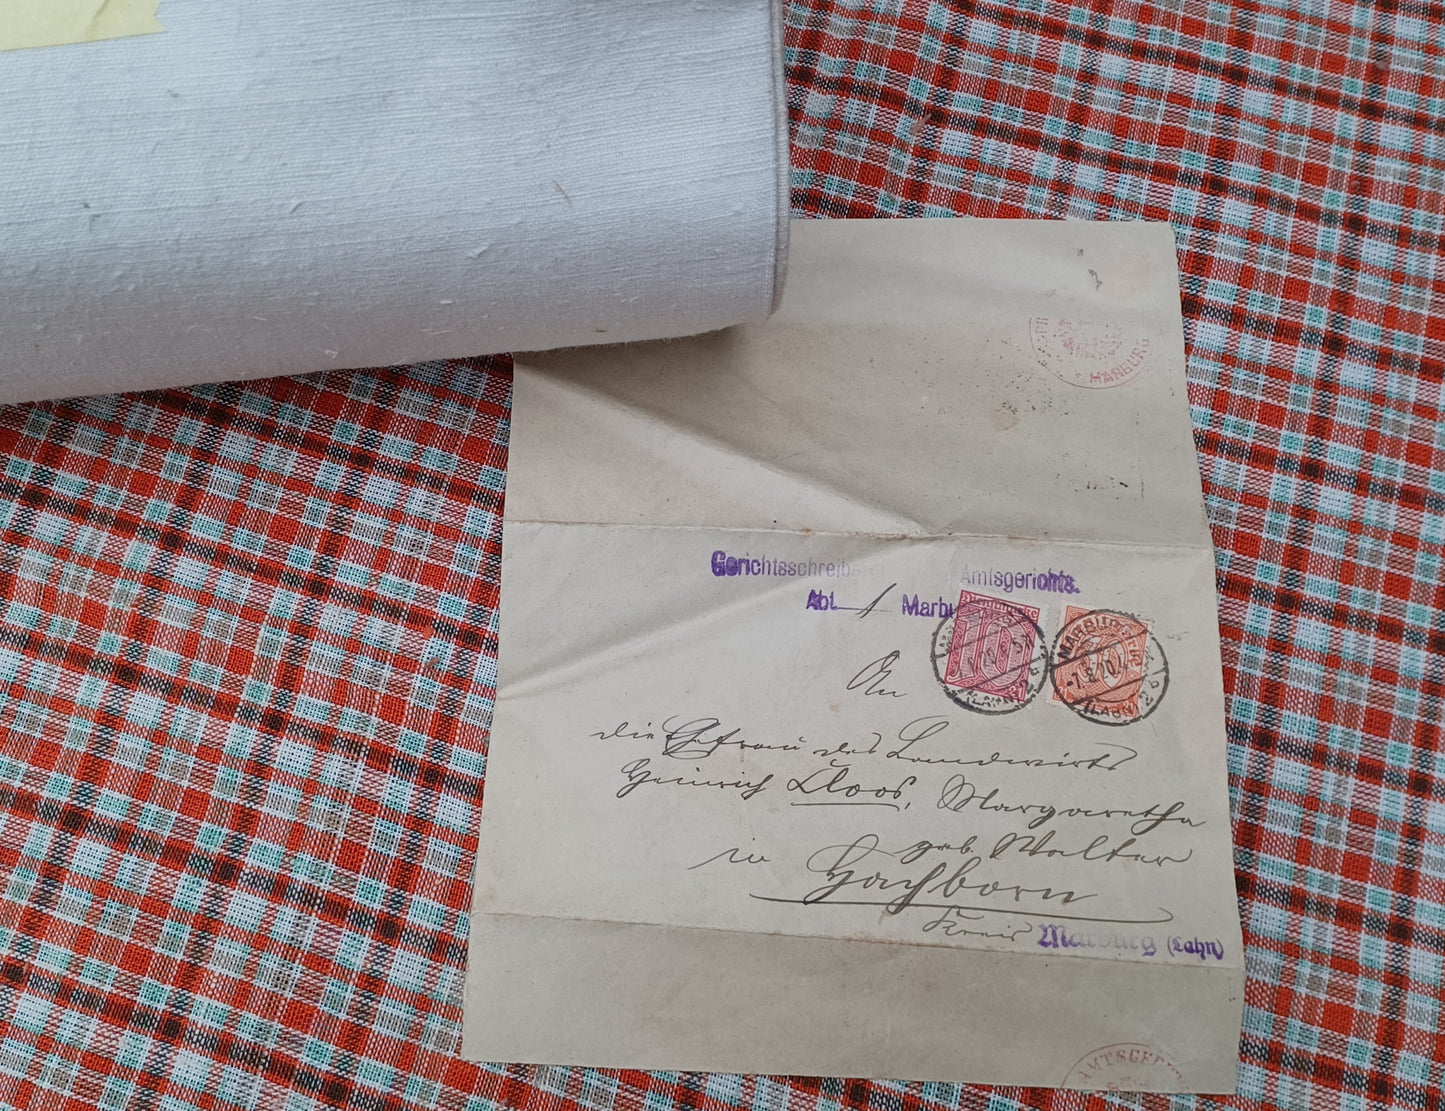 MARBURG
Gerichtsschreibe Amtsgerichts.
Abt. 1 Marbu
MARBURG
10
-7.8.20.4
(LAHN) 2 b
An
die Ehefrau des Landwirts
Heinrich Kloos, Margaretha
geb. Walter
in Hachborn
Kreis Marburg (Lahn)
AMTSGER